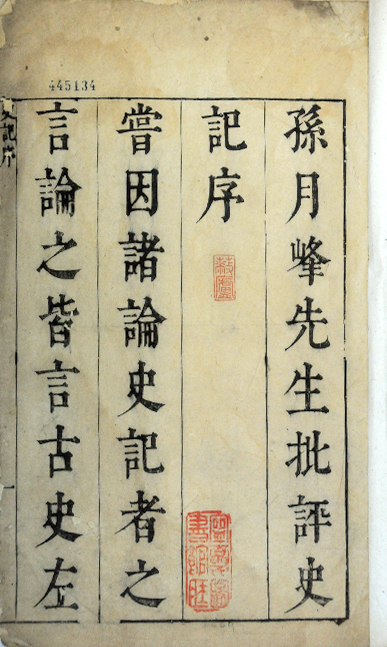 445134
孫月峰先生批評史
記序
嘗因諸論史記者之
言論之皆言古史左
史記序